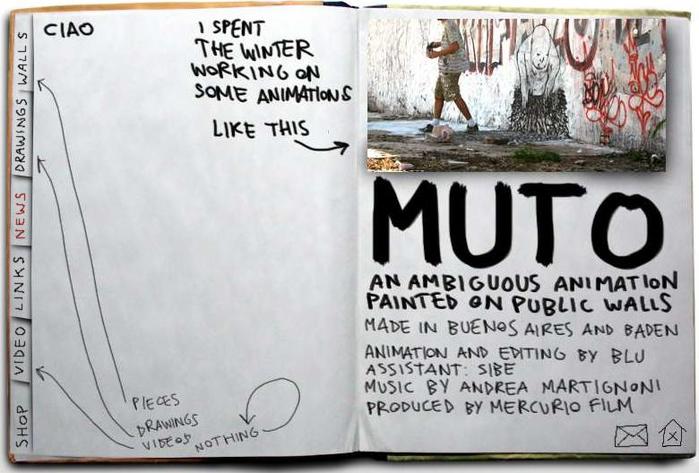 CIAO
I SPENT
THE WINTER
WORKING ON
SOME ANIMATIONS
LIKE THIS
WALLS
DRAWINGS
NEWS
LINKS
VIDEO
SHOP
PIECES
DRAWINGS
VIDEOS
NOTHING
MUTO
AN AMBIGUOUS ANIMATION
PAINTED ON PUBLIC WALLS
MADE IN BUENOS AIRES AND BADEN
ANIMATION AND EDITING BY BLU
ASSISTANT: SIBE
MUSIC BY ANDREA MARTIGNONI
PRODUCED BY MERCURIO FILM